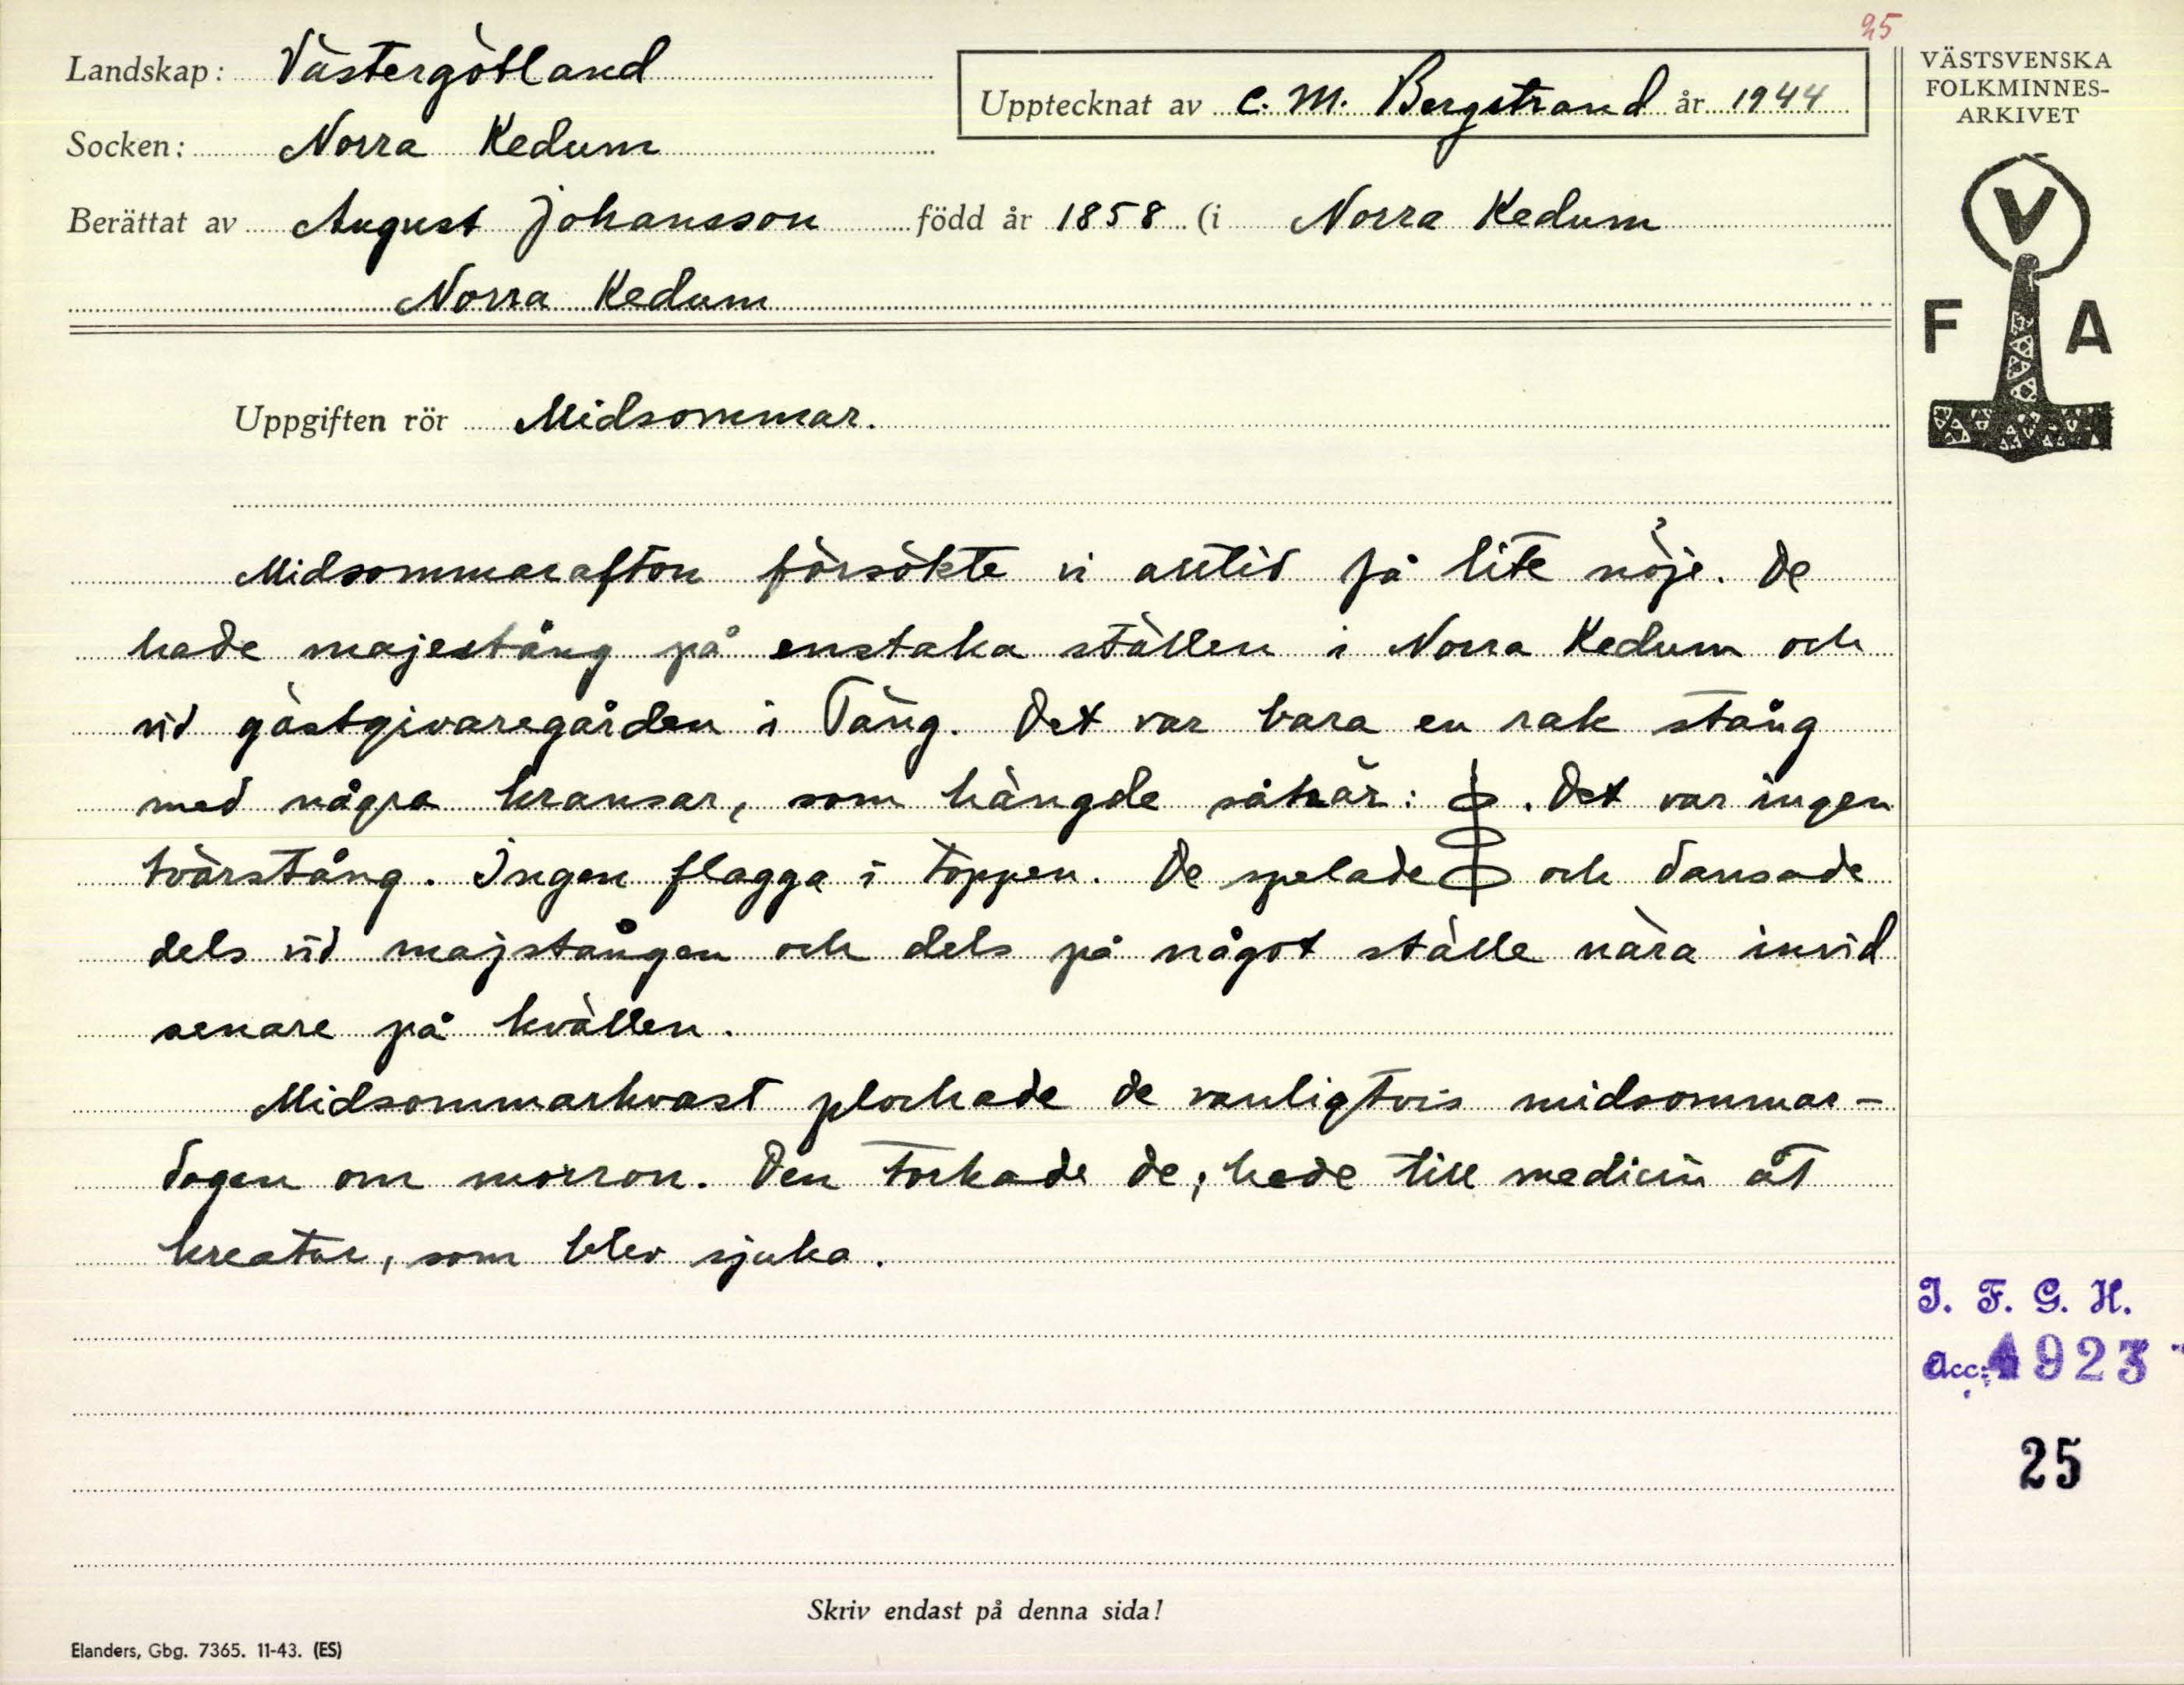 25
Landskap: Västergötland
Upptecknat av C. M. Bergstrand år 1944
VÄSTSVENSKA
FOLKMINNES-
ARKIVET
Socken: Norra Kedum
Berättat av August Johansson född år 1858 (i Norra Kedum
Norra Kedum
V
F A
Uppgiften rör Midsommar.
Midsommarafton försökte vi alltid få lite nöje. De
hade majestång på enstaka ställen i Norra Kedum och
vid gästgivaregården i Täng. Det var bara en rak stång
med några kransar, som hängde såhär: . Det var ingen
tvärstång. Ingen flagga i toppen. De spelade och dansade
dels vid majstången och dels på något ställe nära invid
senare på kvällen.
Midsommarkvast plockade de vanligtvis midsommar-
dagen om morron. Den torkade de, hade till medicin åt
kreatur, som blev sjuka.
I. F. G. H.
Acc: 4923
25
Skriv endast på denna sida!
Elanders, Gbg. 7365. 11-43. (ES)